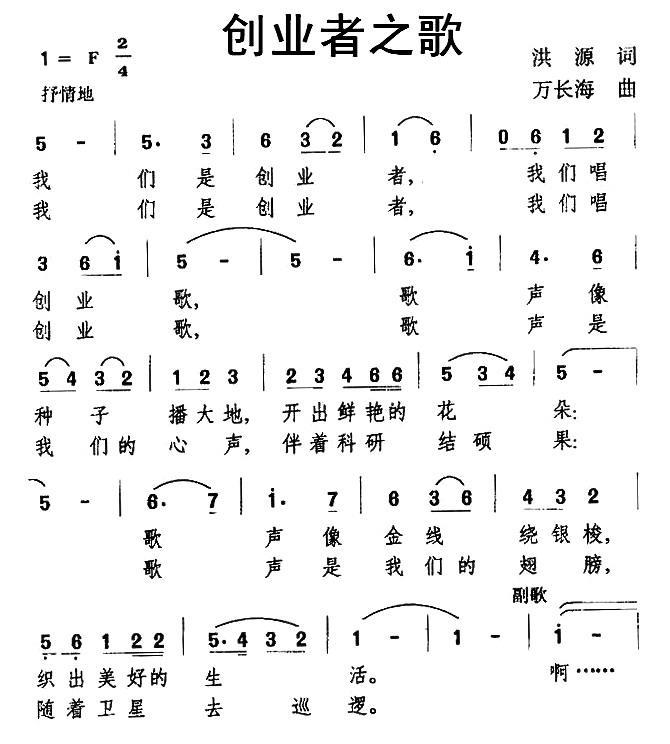 创业者之歌
1 = F 2/4
洪源 词
抒情地
万长海 曲
5 - | 5. 3 | 6 3 2 | 1 6 | 0 6 1 2 |
我 们 是 创 业 者, 我 们 唱
我 们 是 创 业 者, 我 们 唱
3 6 i | 5 - | 5 - | 6. i | 4. 6 |
创 业 歌, 歌 声 像
创 业 歌, 歌 声 是
5 4 3 2 | 1 2 3 | 2 3 4 6 6 | 5 3 4 | 5 - |
种 子 播 大 地, 开 出 鲜 艳 的 花 朵:
我 们 的 心 声, 伴 着 科 研 结 硕 果:
5 - | 6. 7 | i. 7 | 6 3 6 | 4 3 2 |
歌 声 像 金 线 绕 银 梭,
歌 声 是 我 们 的 翅 膀,
副歌
5 6 1 2 2 | 5. 4 3 2 | 1 - | 1 - | i - |
织 出 美 好 的 生 活。 啊……
随 着 卫 星 去 巡 逻。